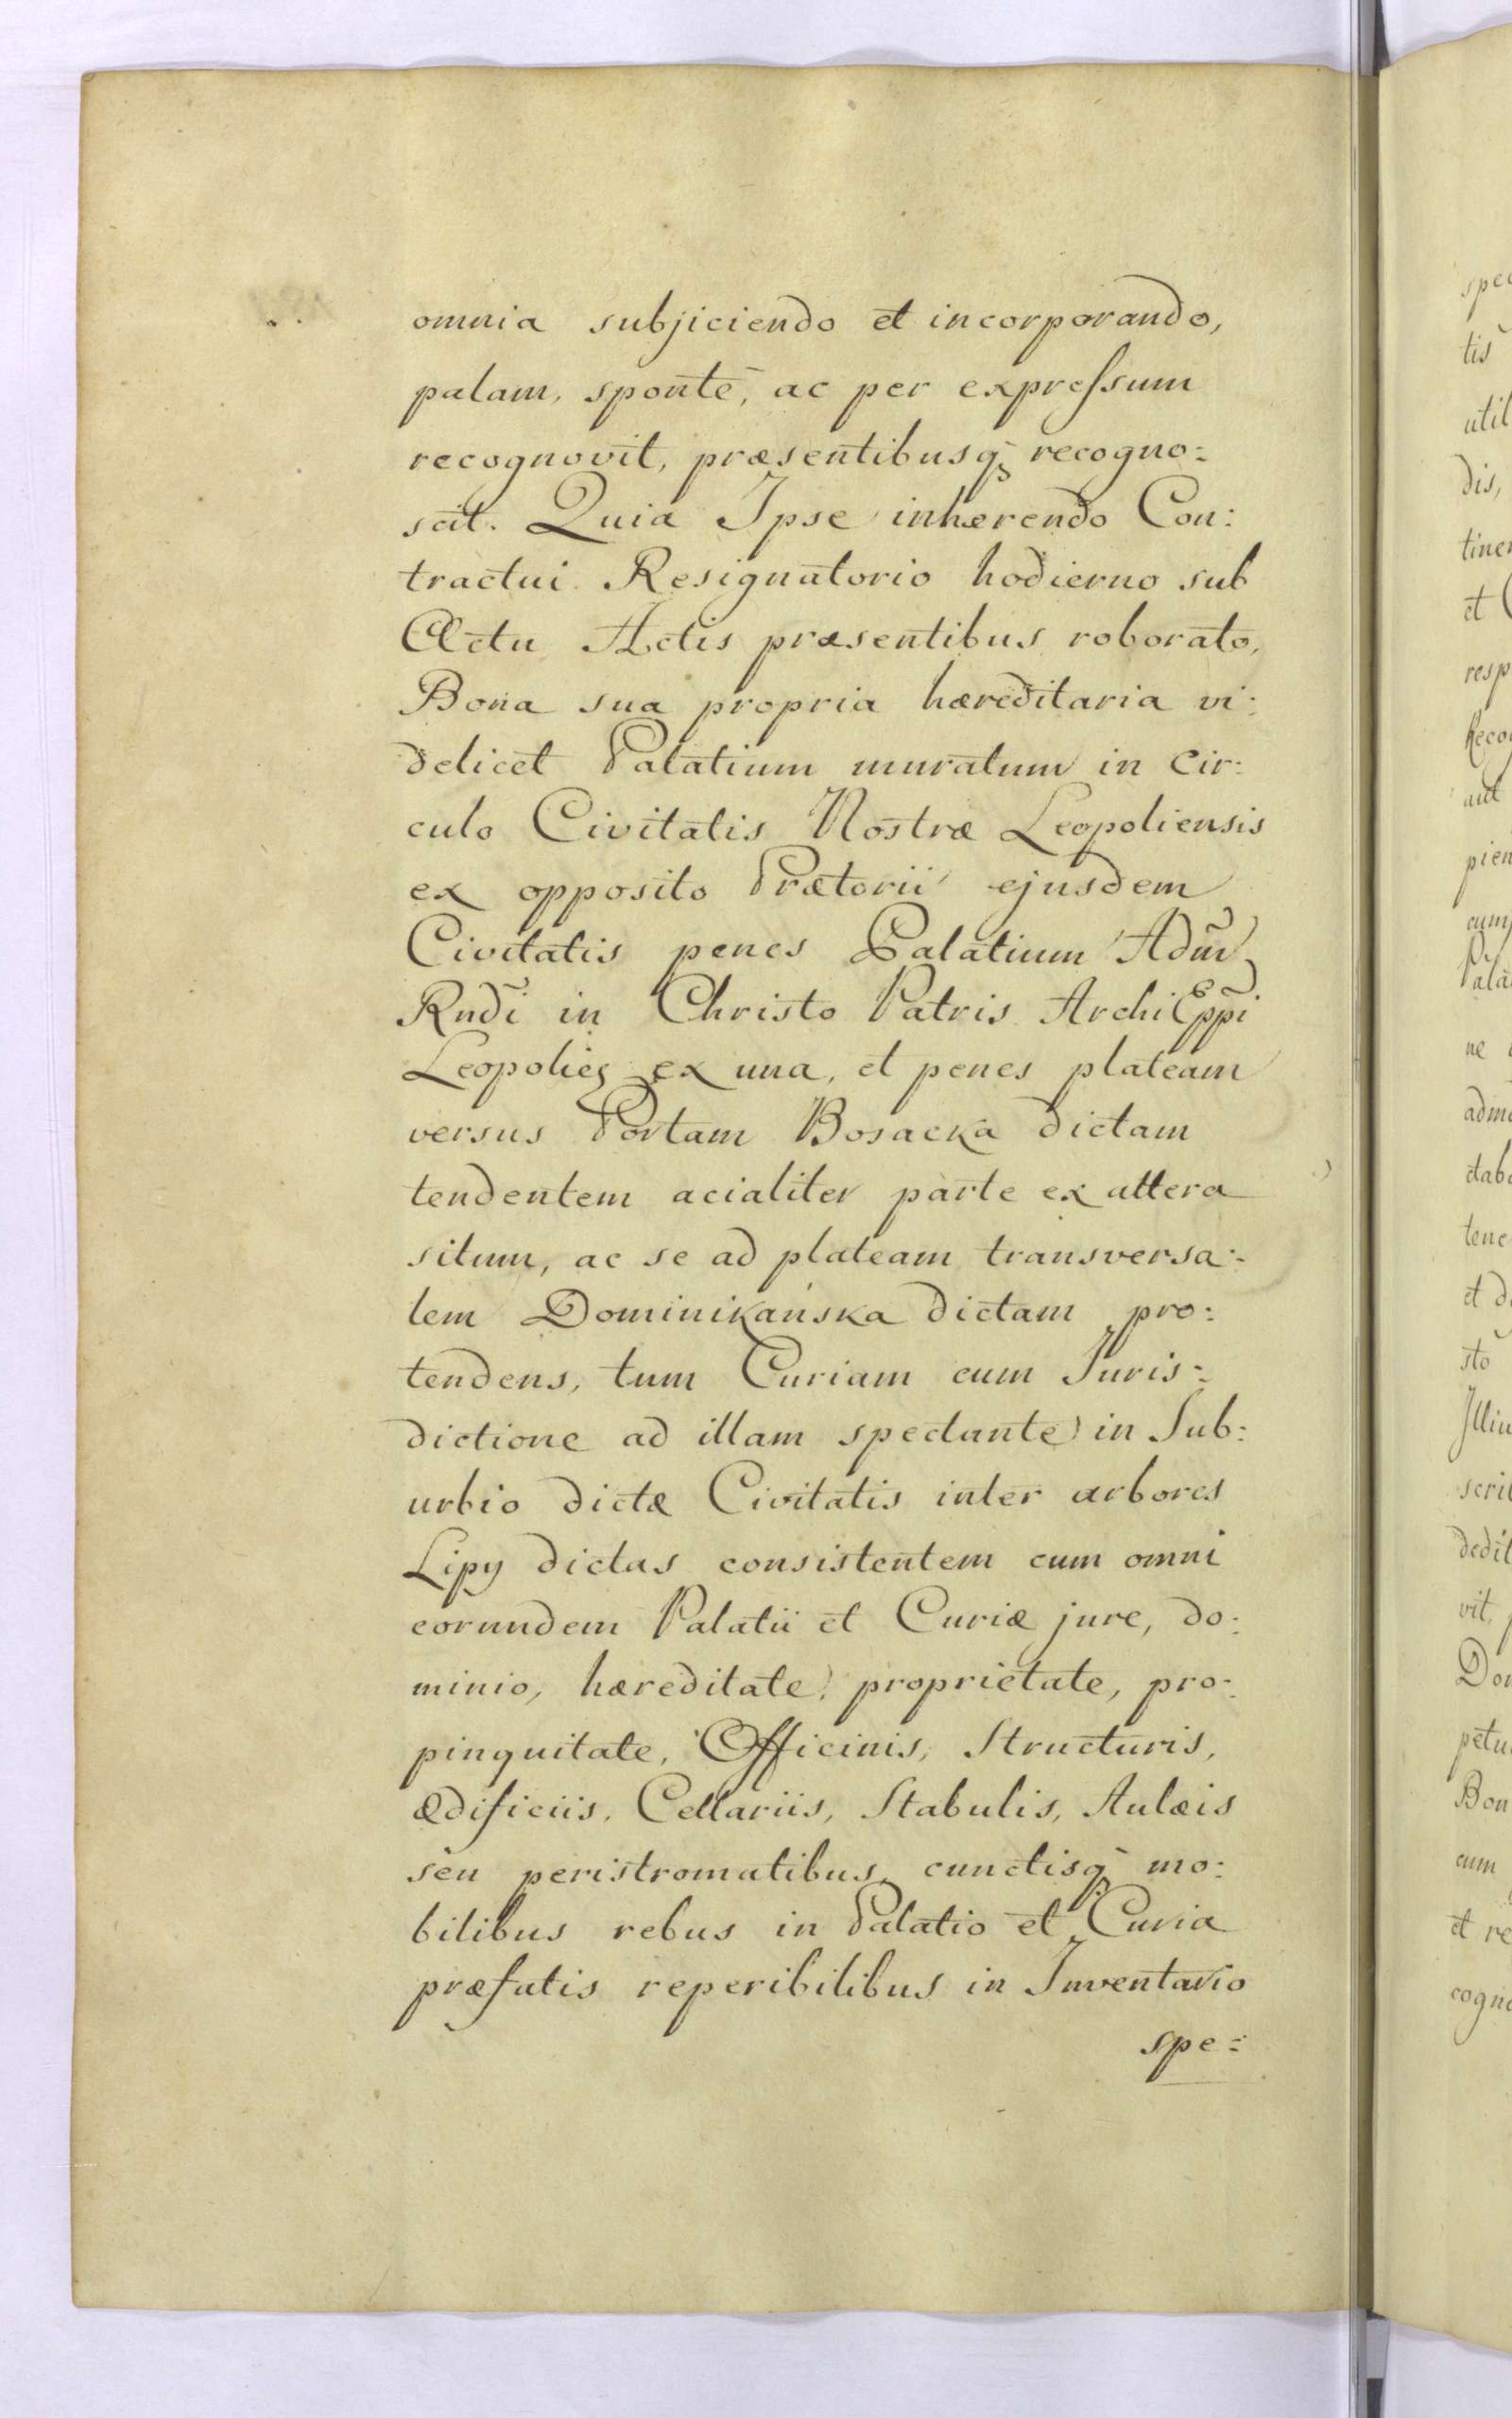 omnia subjiciendo et incorporando,
palam, sponte, ac per expressum
recognovit, præsentibusq̃ recogno:
scit. Quia Ipse inhærendo Con:
tractui Resignatorio hodierno sub
Actu Actis præsentibus roborato,
Bona sua propria hæreditaria vi:
delicet Palatium muratum in Cir:
culo Civitatis Nostræ Leopoliensis
ex opposito Prætorii ejusdem
Civitatis penes Palatium Adm̃
Rndi in Christo Patris ArchiEppi
Leopolieş ex una, et penes plateam
versus Portam Bosacka dictam
tendentem acialiter parte ex altera
situm, ac se ad plateam transversa:
lem Dominikańska dictam pro:
tendens, tum Curiam cum Juris:
dictione ad illam spectante in Sub:
urbio dictæ Civitatis inter arbores
Lipy dictas consistentem cum omni
eorundem Palatii et Curiæ jure, do:
minio, hæreditate, proprietate, pro:
pinquitate, Officinis, Structuris,
Ædificiis, Cellariis, Stabulis, Aulæis
seu peristromatibus, cunctisq̃ mo:
bilibus rebus in Palatio et Curia
præfatis reperibilibus in Inventario
spe: